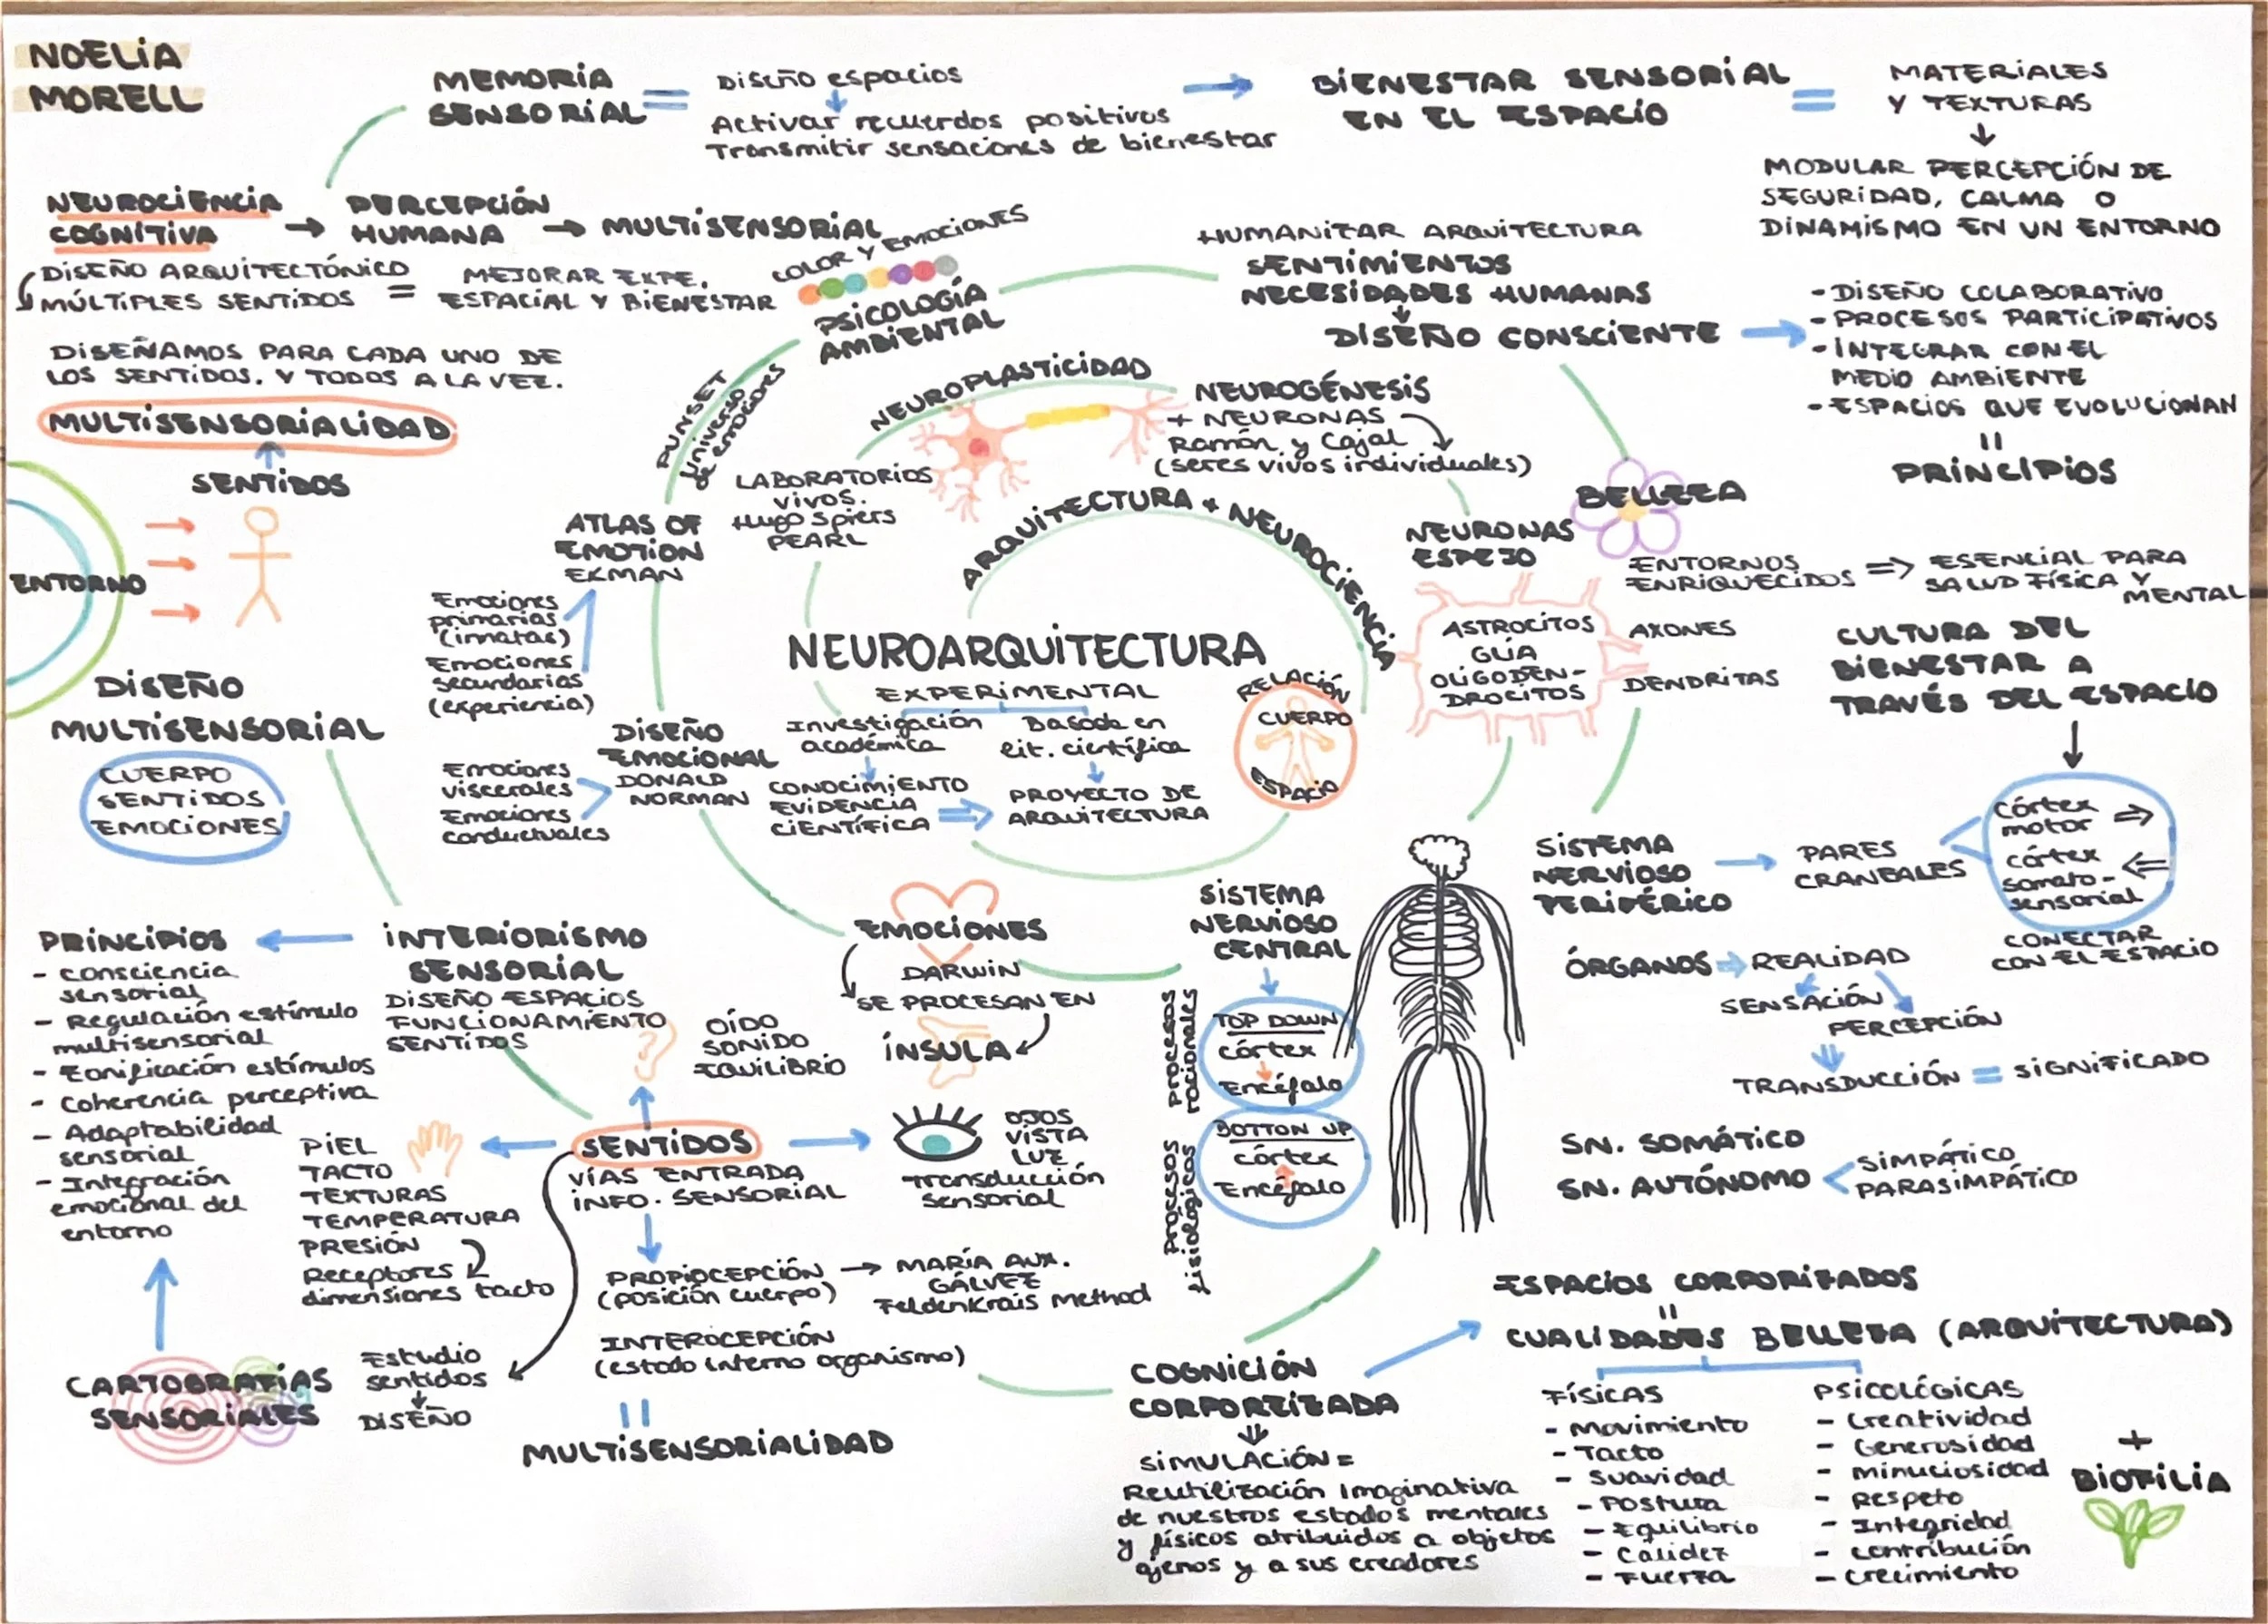 NOELIA
MORELL
MEMORIA
SENSORIAL
=
DISEÑO espacios
Activar recuerdos positivos
Transmitir sensaciones de bienestar
BIENESTAR SENSORIAL
EN EL ESPACIO
=
MATERIALES
Y TEXTURAS
MODULAR PERCEPCIÓN DE
SEGURIDAD, CALMA O
DINAMISMO EN UN ENTORNO
NEUROCIENCIA
COGNITIVA
PERCEPCIÓN
HUMANA
MULTISENSORIAL
DISEÑO ARQUITECTÓNICO
MÚLTIPLES SENTIDOS
=
MEJORAR EXPE.
ESPACIAL Y BIENESTAR
DISEÑAMOS PARA CADA UNO DE
LOS SENTIDOS. Y TODOS A LA VEZ.
MULTISENSORIALIDAD
SENTIDOS
ENTORNO
DISEÑO
MULTISENSORIAL
CUERPO
SENTIDOS
EMOCIONES
COLOR Y EMOCIONES
PSICOLOGÍA
AMBIENTAL
PUNSET
Universo
de emociones
HUMANIZAR ARQUITECTURA
SENTIMIENTOS
NECESIDADES HUMANAS
DISEÑO CONSCIENTE
- DISEÑO COLABORATIVO
- PROCESOS PARTICIPATIVOS
- INTEGRAR CON EL
MEDIO AMBIENTE
- ESPACIOS QUE EVOLUCIONAN
=
PRINCIPIOS
NEUROPLASTICIDAD
NEUROGÉNESIS
+ NEURONAS
Ramón y Cajal
(seres vivos individuales)
LABORATORIOS
VIVOS.
Hugo Spiers
PEARL
ATLAS OF
EMOTION
EKMAN
Emociones
primarias
(innatas)
Emociones
secundarias
(experiencia)
DISEÑO
EMOCIONAL
DONALD
NORMAN
Emociones
viscerales
Emociones
conductuales
ARQUITECTURA + NEUROCIENCIA
NEUROARQUITECTURA
EXPERIMENTAL
Investigación
académica
Basada en
lit. científica
CONOCIMIENTO
EVIDENCIA
CIENTÍFICA
PROYECTO DE
ARQUITECTURA
RELACIÓN
CUERPO
ESPACIO
NEURONAS
ESPEJO
ASTROCITOS
GLÍA
OLIGODEN-
DROCITOS
AXONES
DENDRITAS
BELLEZA
ENTORNOS
ENRIQUECIDOS
ESENCIAL PARA
SALUD FÍSICA Y
MENTAL
CULTURA DEL
BIENESTAR A
TRAVÉS DEL ESPACIO
córtex
motor
córtex
somato-
sensorial
CONECTAR
CON EL ESPACIO
SISTEMA
NERVIOSO
PERIFÉRICO
PARES
CRANEALES
ÓRGANOS
REALIDAD
SENSACIÓN
PERCEPCIÓN
TRANSDUCCIÓN = SIGNIFICADO
SN. SOMÁTICO
SN. AUTÓNOMO
SIMPÁTICO
PARASIMPÁTICO
EMOCIONES
DARWIN
SE PROCESAN EN
ÍNSULA
SISTEMA
NERVIOSO
CENTRAL
Procesos
racionales
TOP DOWN
córtex
Encéfalo
Procesos
fisiológicos
BOTTON UP
córtex
Encéfalo
PRINCIPIOS
- consciencia
sensorial
- Regulación estímulo
multisensorial
- Zonificación estímulos
- Coherencia perceptiva
- Adaptabilidad
sensorial
- Integración
emocional del
entorno
INTERIORISMO
SENSORIAL
DISEÑO ESPACIOS
FUNCIONAMIENTO
SENTIDOS
OÍDO
SONIDO
EQUILIBRIO
SENTIDOS
VÍAS ENTRADA
INFO. SENSORIAL
PIEL
TACTO
TEXTURAS
TEMPERATURA
PRESIÓN
Receptores
dimensiones tacto
OJOS
VISTA
LUZ
Transducción
sensorial
PROPIOCEPCIÓN
(posición cuerpo)
MARÍA AUX.
GÁLVEZ
Feldenkrais Method
INTEROCEPCIÓN
(estado interno organismo)
=
MULTISENSORIALIDAD
CARTOGRAFÍAS
SENSORIALES
Estudio
sentidos
DISEÑO
COGNICIÓN
CORPOREIZADA
SIMULACIÓN =
Reutilización Imaginativa
de nuestros estados mentales
y físicos atribuidos a objetos
ajenos y a sus creadores
ESPACIOS CORPORIZADOS
=
CUALIDADES BELLEZA (ARQUITECTURA)
FÍSICAS
- Movimiento
- Tacto
- Suavidad
- Postura
- Equilibrio
- Calidez
- Fuerza
PSICOLÓGICAS
- Creatividad
- Generosidad
- minuciosidad
- Respeto
- Integridad
- contribución
- crecimiento
+
BIOFILIA